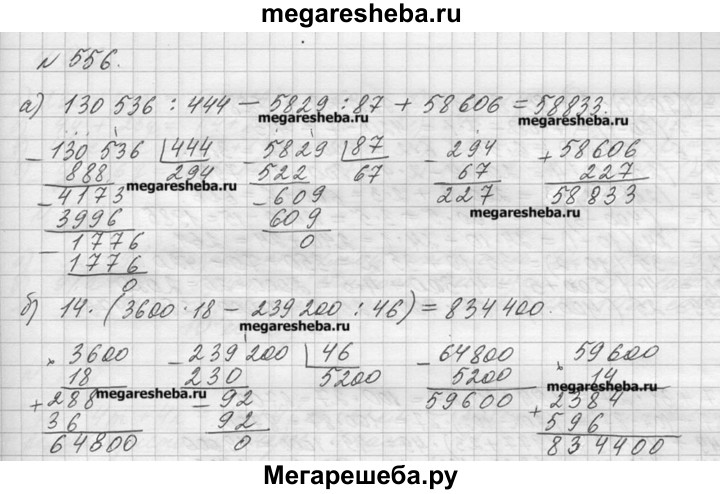 megaresheba.ru
№ 556.
а) 130 536 : 444 - 5829 : 87 + 58606 = 58833.
megaresheba.ru megaresheba.ru
- 130 536 | 444 - 5829 | 87 - 294 + 58606
888 294 522 67 67 227
megaresheba.ru
- 4173 - 609 227 58833
megaresheba.ru
3996 609
- 1776 0
1776
0
б) 14 · (3600 · 18 - 239 200 : 46) = 834 400.
megaresheba.ru
× 3600 - 239 200 | 46 - 64800 × 59600
18 230 5200 5200 14
megaresheba.ru megaresheba.ru
+ 288 - 92 59600 + 2384
36 92 596
64800 0 834400
Мегарешеба.ру